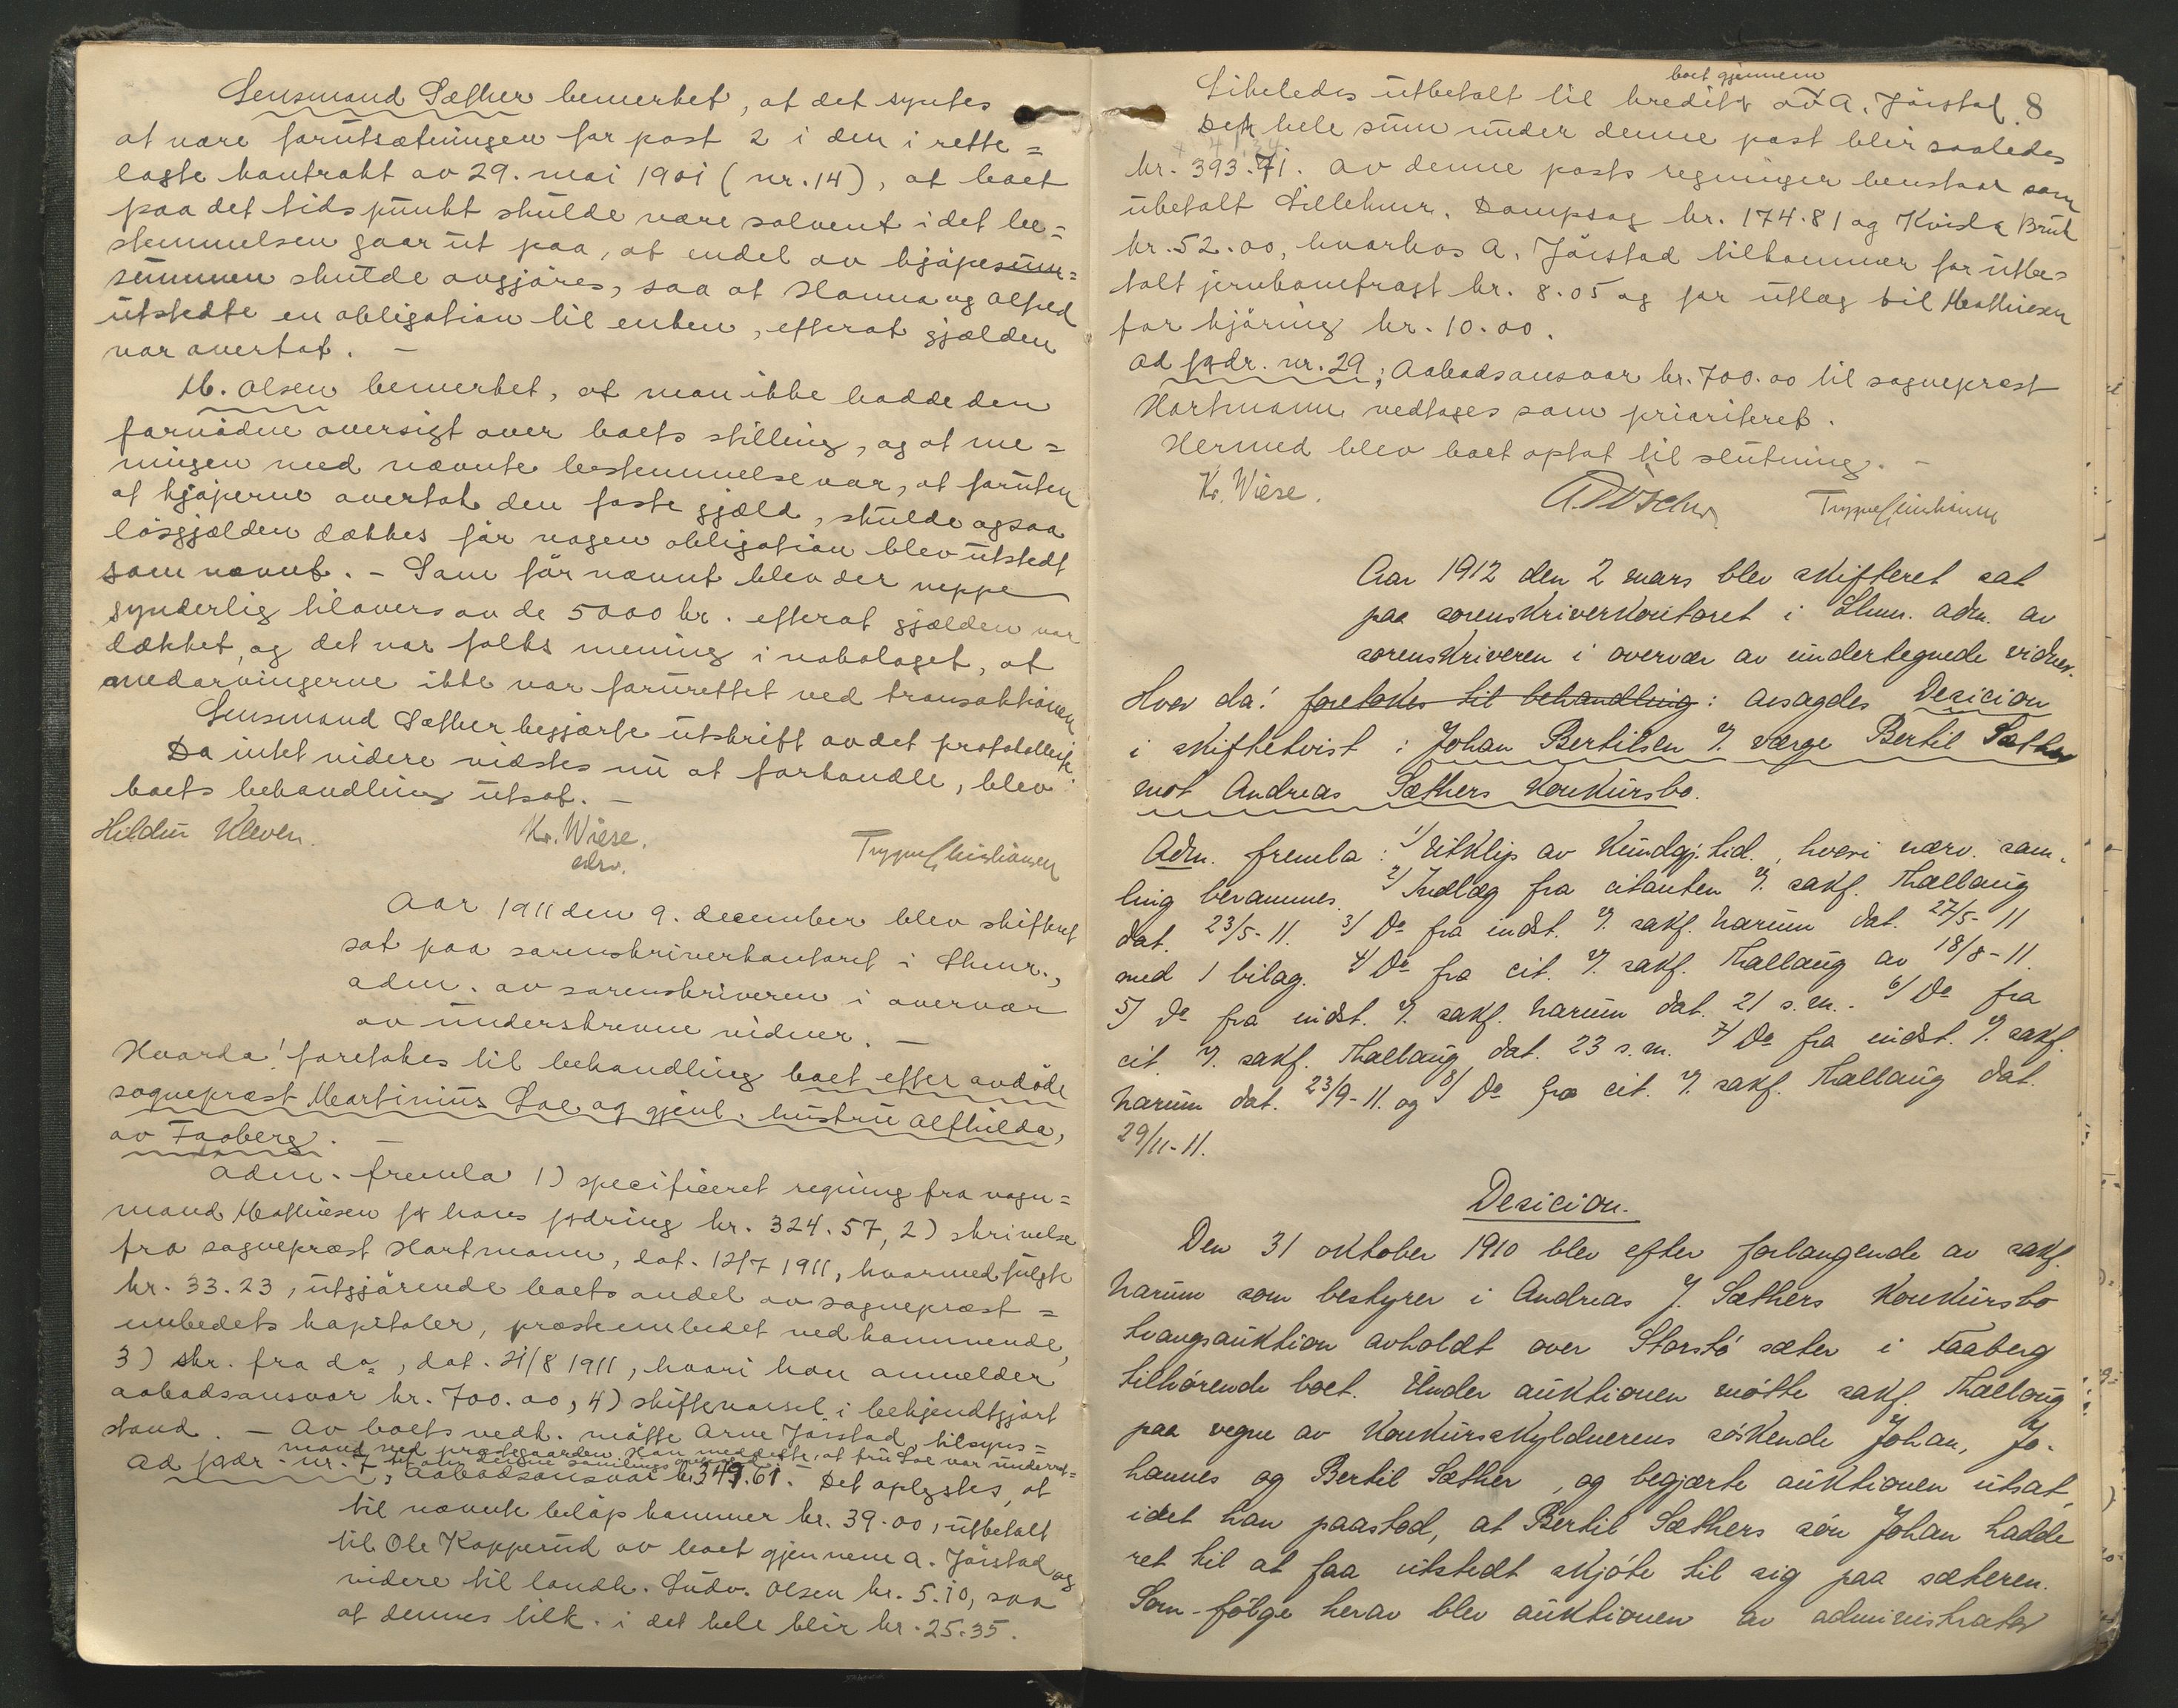 Lensmand Sæther bemerket, at det syntes
at være forutsætningen for post 2 i den i rette=
lagte kontrakt av 29. mai 1901 (nr. 14), at boet
paa det tidspunkt skulde være solvent idet be=
stemmelsen gaar ut paa, at endel av kjøpesum=
summen skulde avgjøres, saa at Hanna og Alfred
utstedte en obligation til enken, efterat gjælden
var overtat. —
M. Olsen bemerket, at man ikke hadde den
fornødne oversigt over boets stilling, og at me=
ningen med nævnte bestemmelse var, at foruten
at kjøperne overtok den faste gjæld, skulde ogsaa
løsgjælden dækkes før nogen obligation blev utstedt
som nævnt. – Som før nævnt blev der neppe
synderlig tilovers av de 5000 kr. efterat gjælden var
dækket, og det var folks mening i nabolaget, at
medarvingerne ikke var forurettet ved transaktionen
Lensmand Sæther begjærte utskrift av det protokollerte.
Da intet videre vidstes nu at forhandle, blev
boets behandling utsat. —
Hildur Kleven. Kr. Wiese. Trygve Christiansen
edsv.
Aar 1911 den 9. december blev skifteret
sat paa sorenskriverkontoret i Lhmr.,
adm. av sorenskriveren i overvær
av underskrevne vidner. —
Hvorda! foretokes til behandling boet efter avdøde
sogneprest Martinius Loe og gjenl. hustru Alfhilda,
av Faaberg. —
Adm. fremla 1) specificeret regning fra vogn=
mand Mathiesen for hans fordring kr. 324.57, 2) skrivelse
fra sogneprest Hartmann, dat. 12/7 1911, hvormed fulgte
kr. 33.23, utgjørende boets andel av sogneprest=
embedets kapitaler, presteembedet vedkommende,
3) skr. fra do, dat. 21/8 1911, hvori han anmelder
aabodsansvar kr. 700.00, 4) skiftevarsel i bekjendtgjort
stand. — Av boets vedk. møtte Arne Jørstad, tilsyns=
mand ved prestegaarden. Han meddelte, at fru Loe var underret=
tet om denne samlings avholdelse.
Ad fordr. nr. 7, aabodsansvar kr. 349.61. Det oplystes, at
til nævnte beløp kommer kr. 39.00, utbetalt
til Ole Kopperud av boet gjennem A. Jørstad og
videre til landh. Ludv. Olsen kr. 5.10, saa
at dennes tilk. i det hele blir kr. 25.35.
8
boet gjennem
Likeledes utbetalt til kredit av A. Jørstad.
Den hele sum under denne post blir saaledes
kr. 393.71. Av denne posts regninger henstaar som
ubetalt Lillehmr. Dampsag kr. 174.81 og Kvisla Bruk
kr. 52.00, hvorhos A. Jørstad tilkommer for utbe=
talt jernbanefragt kr. 8.05 og for utlæg til Mathiesen
for kjøring kr. 10.00.
ad fordr. nr. 29; Aabodsansvar kr. 700.00 til sogneprest
Hartmann vedtages som prioritert.
Hermed blev boet optat til slutning. —
Kr. Wiese. Trygve Christiansen
Aar 1912 den 2 mars blev skifteret sat
paa sorenskriverkontoret i Lhmr. adm. av
sorenskriveren i overvær av undertegnede vidner.
Hvor da! foretokes til behandling: avsagdes Desicion
i skiftetvist: Johan Bertilsen v/ værge Bertil Sæther
mot Andreas Sæthers Konkursbo.
Adm. fremla: 1/ Utklip av Kundgj. tid., hvori nærv. sam-
ling berammes. 2/ Indlæg fra citanten v/ sakf. Thallaug
dat. 23/5-11. 3/ Do fra indst. v/ sakf. Harum dat. 27/5-11
med 1 bilag. 4/ Do fra cit. v/ sakf. Thallaug av 18/8-11.
5/ Do fra indst. v/ sakf. Harum dat. 21 s.m. 6/ Do fra
cit. v/ sakf. Thallaug dat. 23 s.m. 7/ Do fra indst. v/ sakf.
Harum dat. 23/9-11. og 8/ Do fra cit. v/ sakf. Thallaug dat.
29/11-11.
Desicion.
Den 31 oktober 1910 blev efter forlangende av sakf.
Harum som bestyrer i Andreas J. Sæthers Konkursbo
tvangsauktion avholdt over Storstø sæter i Faaberg
tilhørende boet. Under auktionen møtte sakf. Thallaug
paa vegne av Konkursskyldnerens søskende Johan, Jo-
hannes og Bertil Sæther, og begjærte auktionen utsat,
idet han paastod, at Bertil Sæthers søn Johan hadde
ret til at faa utstedt skjøte til sig paa sæteren.
Som følge herav blev auktionen av administrator